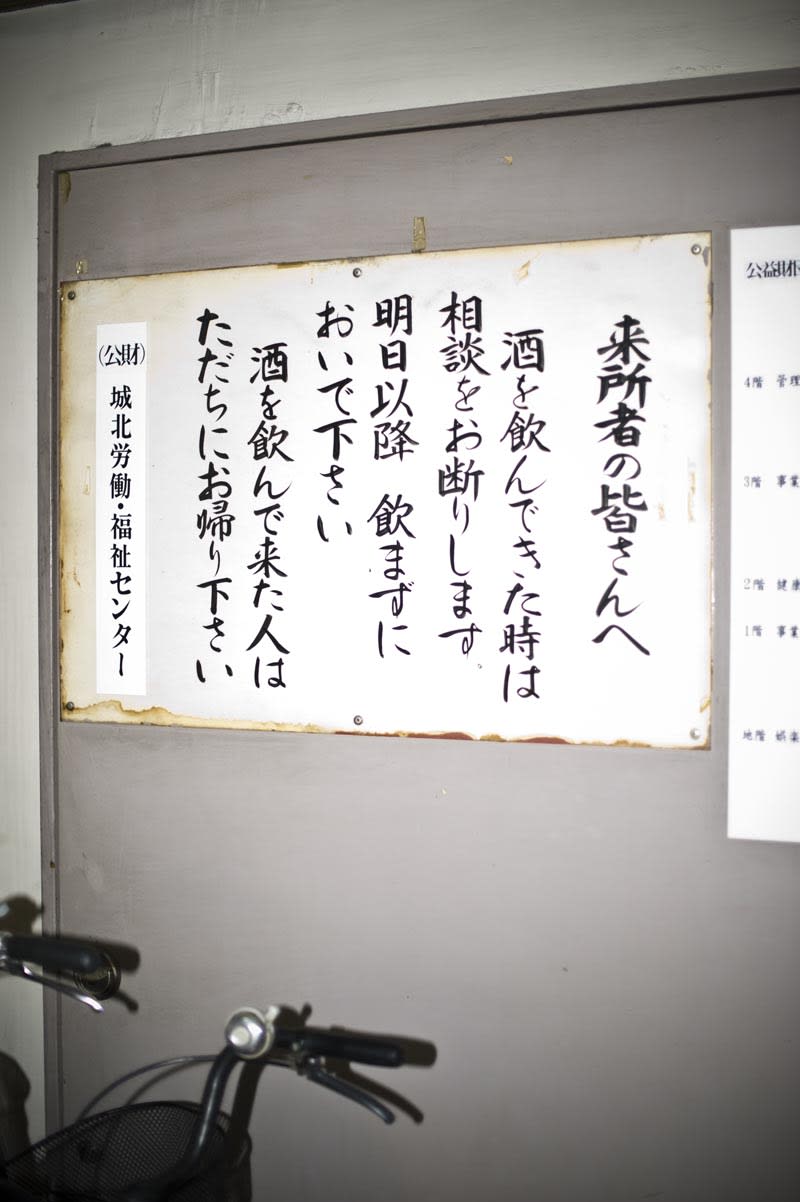 来所者の皆さんへ
酒を飲んできた時は
相談をお断りします。
明日以降 飲まずに
おいで下さい
酒を飲んで来た人は
ただちにお帰り下さい
(公財) 城北労働・福祉センター
公益財団
4階 管理
3階 事業
2階 健康
1階 事業
地階 娯楽